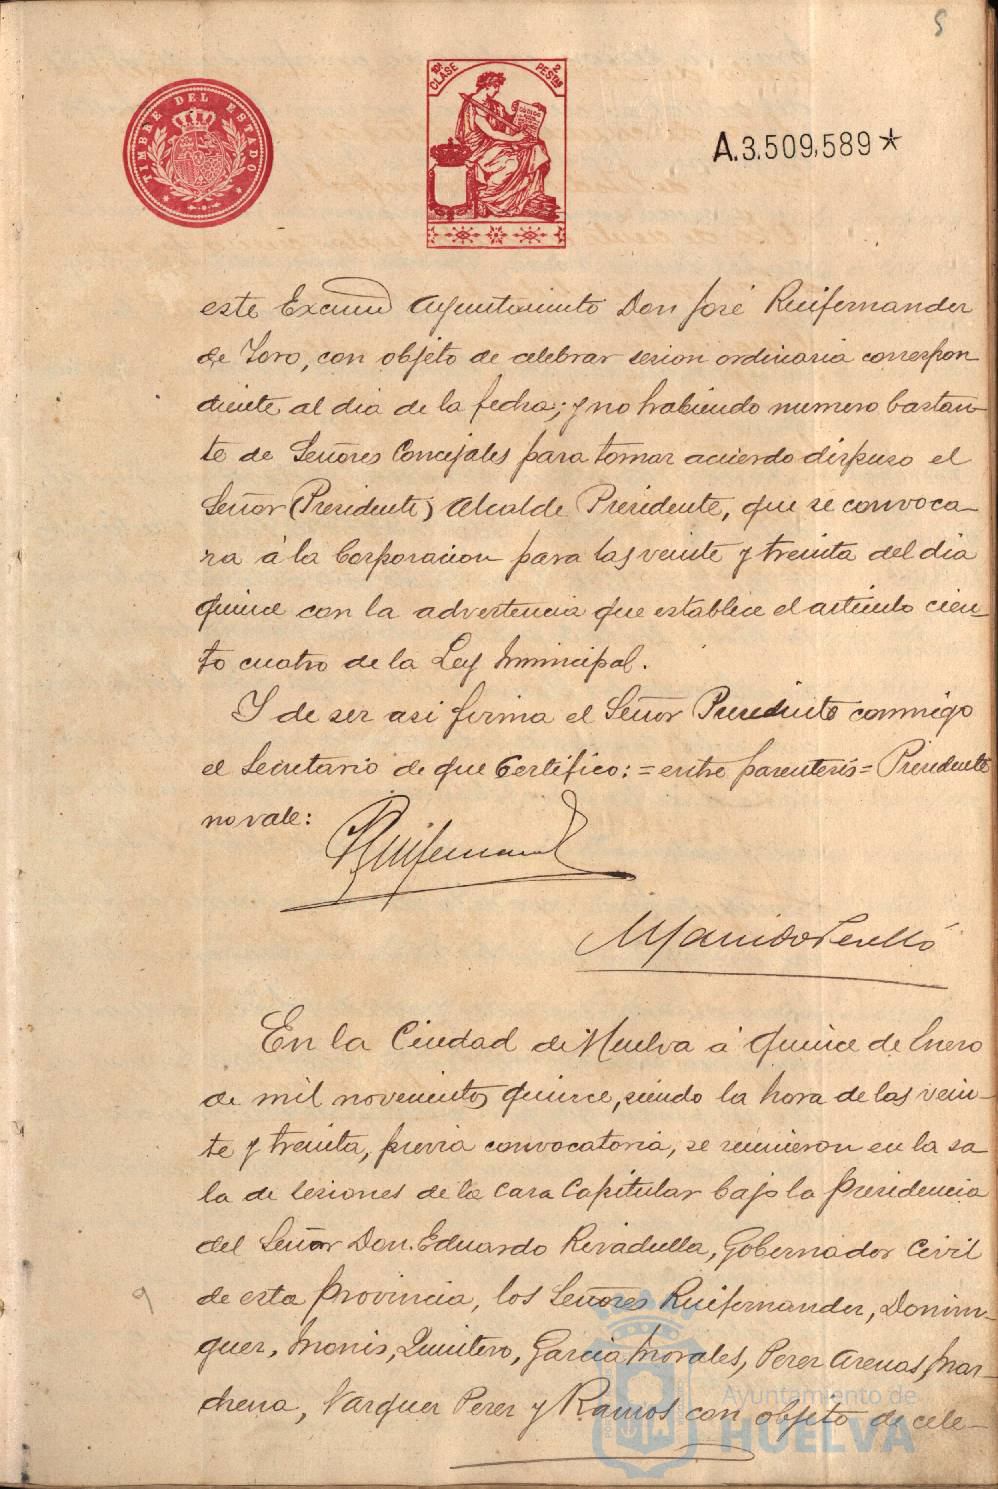 5
TIMBRE DEL ESTADO
10ª CLASE 2 PESTAS
A.3.509.589*
este Excmo Ayuntamiento Don José Ruifernandez
de Toro, con objeto de celebrar sesion ordinaria correspon
diente al dia de la fecha; y no habiendo numero bastan-
te de Señores Concejales para tomar acuerdo dispuso el
Señor (Presidente) Alcalde Presidente, que se convoca-
ra á la Corporacion para las veinte y treinta del dia
quince con la advertencia que establece el articulo cien-
to cuatro de la Ley Municipal.
Y de ser asi firma el Señor Presidente conmigo
el Secretario de que Certifico: = entre parentesis = Presidente
no vale:
Ruifernand
En la Ciudad de Huelva á quince de Enero
de mil novecientos quince, siendo la hora de las vein-
te y treinta, previa convocatoria, se reunieron en la sa-
la de sesiones de la Casa Capitular bajo la Presidencia
del Señor Don Eduardo Rivadulla, Gobernador Civil
de esta Provincia, los Señores Ruifernandez, Domin-
guez, Monis, Quintero, Garcia Morales, Perez Arenas, Mar-
chena, Vazquez Perez y Ramos con objeto de cele-
9
Ayuntamiento de
HUELVA